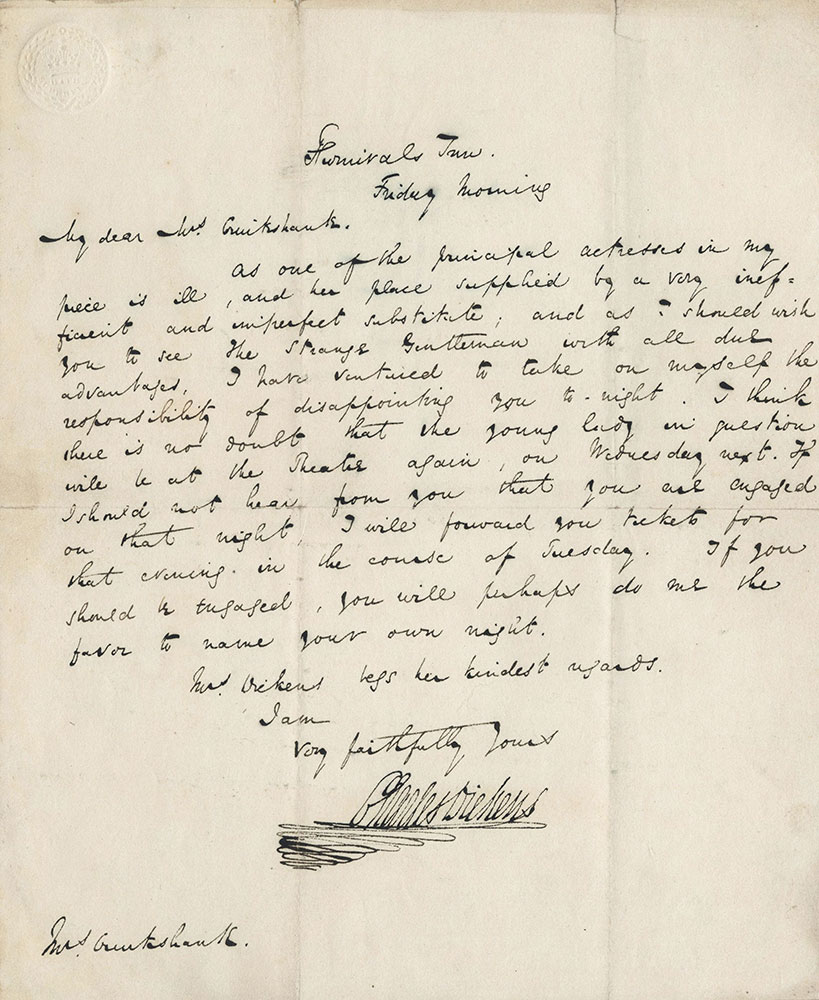 Furnivals Inn.
Friday Morning
My dear Mrs Cruikshank.
As one of the principal actresses in my
piece is ill, and her place supplied by a very inef=
ficient and imperfect substitute; and as I should wish
you to see The Strange Gentleman with all due
advantages, I have ventured to take on myself the
responsibility of disappointing you to-night. I think
there is no doubt that the young lady in question
will be at the Theatre again, on Wednesday next. If
I should not hear from you that you are engaged
on that night, I will forward you tickets for
that evening in the course of Tuesday. If you
should be engaged, you will perhaps do me the
favor to name your own night.
Mrs Dickens begs her kindest regards.
I am
Very faithfully Yours
Charles Dickens
Mrs. Cruikshank.